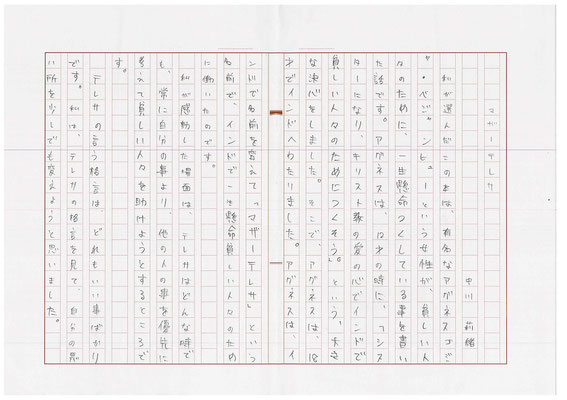 マザーテレサ
中川 莉緒
私が選んだこの本は、有名なアグネス・ゴンジ
ャ・ベジャンヒューという女性が、貧しい人
々のために、一生懸命つくしている事を書い
た話です。アグネスは、12才の時に、「シス
ターになり、キリスト教の愛の心でインドで
貧しい人々のためにつくそう。」という、大き
な決心をしました。そこで、アグネスは、18
才でインドへわたりました。アグネスは、イ
ンドで名前を変えて「マザーテレサ」という
名前で、インドで一生懸命貧しい人々のため
に働いたのです。
私が感動した場面は、テレサはどんな時で
も、常に自分の事より、他の人の事を優先に
考えて貧しい人々を助けようとするところで
す。
テレサの言う格言は、どれもいい事ばかり
です。私は、テレサの格言を見て、自分の悪
い所を少しでも変えようと思いました。